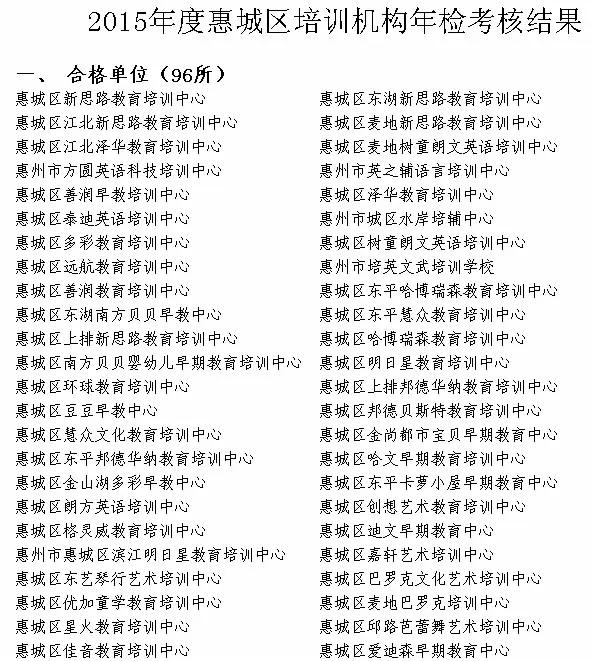 2015年度惠城区培训机构年检考核结果
一、 合格单位（96所）
惠城区新思路教育培训中心 惠城区东湖新思路教育培训中心
惠城区江北新思路教育培训中心 惠城区麦地新思路教育培训中心
惠城区江北泽华教育培训中心 惠城区麦地树童朗文英语培训中心
惠州市方圆英语科技培训中心 惠州市英之辅语言培训中心
惠城区善润早教培训中心 惠城区泽华教育培训中心
惠城区泰迪英语培训中心 惠州市城区水岸培辅中心
惠城区多彩教育培训中心 惠城区树童朗文英语培训中心
惠城区远航教育培训中心 惠州市培英文武培训学校
惠城区善润教育培训中心 惠城区东平哈博瑞森教育培训中心
惠城区东湖南方贝贝早教中心 惠城区东平慧众教育培训中心
惠城区上排新思路教育培训中心 惠城区哈博瑞森教育培训中心
惠城区南方贝贝婴幼儿早期教育培训中心 惠城区明日星教育培训中心
惠城区环球教育培训中心 惠城区上排邦德华纳教育培训中心
惠城区豆豆早教中心 惠城区邦德贝斯特教育培训中心
惠城区慧众文化教育培训中心 惠城区金尚都市宝贝早期教育中心
惠城区东平邦德华纳教育培训中心 惠城区哈文早期教育培训中心
惠城区金山湖多彩早教中心 惠城区东平卡萝小屋早期教育中心
惠城区朗方英语培训中心 惠城区创想艺术教育培训中心
惠城区格灵威教育培训中心 惠城区迪文早期教育中心
惠州市惠城区滨江明日星教育培训中心 惠城区嘉轩艺术培训中心
惠城区东艺琴行艺术培训中心 惠城区巴罗克文化艺术培训中心
惠城区优加童学教育培训中心 惠城区麦地巴罗克培训中心
惠城区星火教育培训中心 惠城区邱路芭蕾舞艺术培训中心
惠城区佳音教育培训中心 惠城区爱迪森早期教育中心